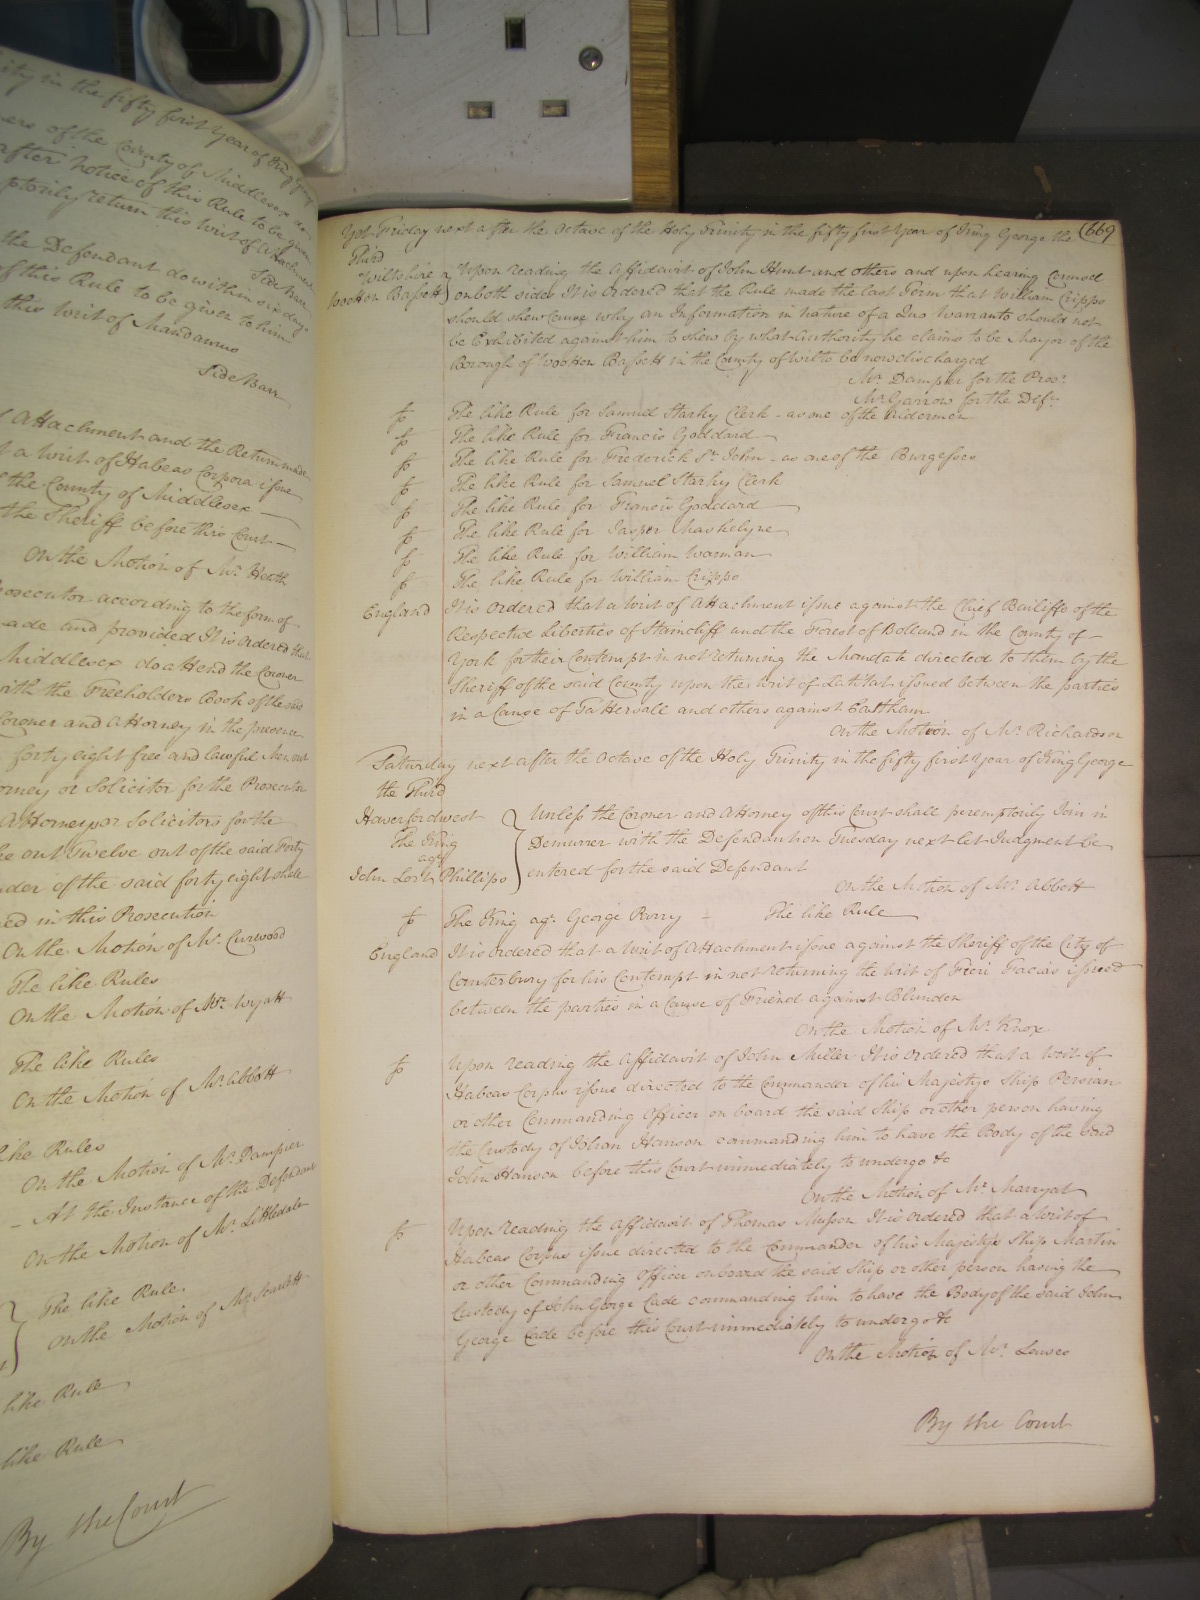 ity in the fifty first Year of King George
ners of the County of Middlesex do
after notice of this Rule to be given
ptorily return this Writ of Attachment
Side Barr
the Defendant do within six days
of this Rule to be given to him
this Writ of Mandamus
Side Barr
Attachment and the Return made
t a Writ of Habeas Corpora issue
the County of Middlesex
the Sheriff before this Court
On the Motion of Mr. Heath
rosecutor according to the form of
ade and provided It is Ordered that
Middlesex do attend the Coroner
with the Freeholders Book of the said
Coroner and Attorney in the presence
forty eight free and lawful Men out
orney or Solicitor for the Prosecutor
Attorneys or Solicitors for the
ke out Twelve out of the said Forty
nder of the said forty eight shall
ned in this Prosecution
On the Motion of Mr. Curwood
The like Rules
On the Motion of Mr. Wyatt
The like Rules
On the Motion of Mr. Abbott
like Rules
On the Motion of Mr. Dampier
– At the Instance of the Defendant
On the Motion of Mr. Littledale
The like Rule.
On the Motion of Mr. Scarlett
like Rule
like Rule
By the Court
Yet Friday next after the Octave of the Holy Trinity in the fifty first Year of King George the (669
Third
Wiltshire Upon reading the Affidavit of John Hunt and others and upon hearing Counsel
Wootton Bassett on both sides It is Ordered that the Rule made the last Term that William Cripps
should shew Cause why an Information in nature of a Quo Warranto should not
be Exhibited against him to shew by what authority he claims to be Mayor of the
Borough of Wootton Bassett in the County of Wilts be now discharged
Mr. Dampier for the Pros.r
Mr. Garrow for the Def.t
The like Rule for Samuel Starky Clerk – as one of the Aldermen
The like Rule for Francis Goddard
The like Rule for Frederick St. John – as one of the Burgesses
The like Rule for Samuel Starky Clerk
The like Rule for Francis Goddard
The like Rule for Jasper Maskelyne
The like Rule for William Warman
The like Rule for William Cripps
England It is Ordered that a Writ of Attachment issue against the Chief Bailiffs of the
Respective Liberties of Staincliff and the Forest of Bolland in the County of
York for their Contempt in not returning the Mandate directed to them by the
Sheriff of the said County upon the Writ of Latitat issued between the parties
in a Cause of Tattersall and others against Eastham
On the Motion of Mr. Richardson
Saturday next after the Octave of the Holy Trinity in the fifty first Year of King George
the Third
Haverfordwest Unless the Coroner and Attorney of this Court shall peremptorily Join in
The King Demurrer with the Defendant on Tuesday next let Judgment be
agt.
John Lort Phillips entered for the said Defendant
On the Motion of Mr. Abbott
The King agt. George Parry – The like Rule
England It is Ordered that a Writ of Attachment issue against the Sheriff of the City of
Canterbury for his Contempt in not returning the Writ of Fieri Facias issued
between the parties in a Cause of Friend against Blunden
On the Motion of Mr. Knox
Upon reading the Affidavit of John Miller It is Ordered that a Writ of
Habeas Corpus issue directed to the Commander of his Majestys Ship Persian
or other Commanding Officer on board the said Ship or other person having
the Custody of John Hanson commanding him to have the Body of the said
John Hanson before this Court immediately to undergo &c
On the Motion of Mr. Marryat
Upon reading the Affidavit of Thomas Musson It is Ordered that a Writ of
Habeas Corpus issue directed to the Commander of his Majestys Ship Martin
or other Commanding Officer on board the said Ship or other person having the
Custody of John George Cade commanding him to have the Body of the said John
George Cade before this Court immediately to undergo &c
On the Motion of Mr. Lawes
By the Court